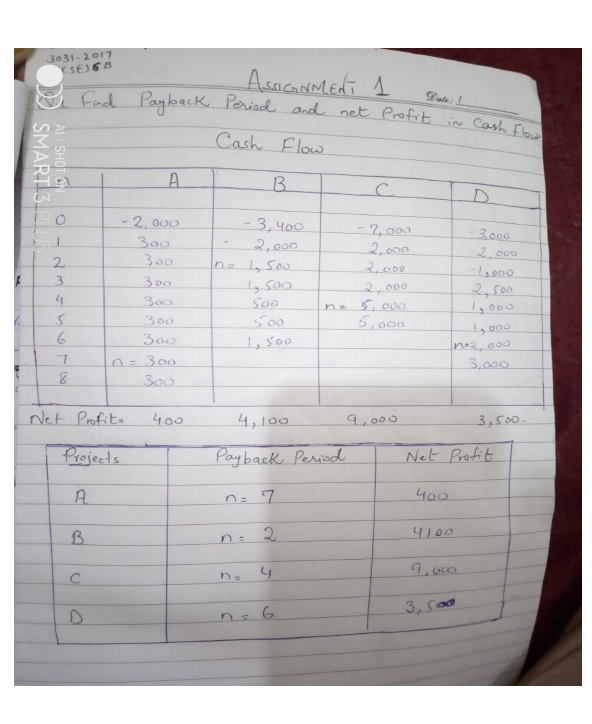 3031-2017
(CSE) 6 B
ASSIGNMENT 1 Date: 1
Find Payback Period and net Profit in Cash Flow
Cash Flow
A B C D
0 -2,000 -3,400 -7,000 -3,000
1 300 2,000 2,000 -2,000
2 300 n= 1,500 2,000 -1,000
3 300 1,500 2,000 2,500
4 300 500 n= 5,000 1,000
5 300 500 5,000 1,000
6 300 1,500 n=2,000
7 n= 300 3,000
8 300
Net Profit= 400 4,100 9,000 3,500.
Projects Payback Period Net Profit
A n= 7 400
B n= 2 4100
C n= 4 9,000
D n= 6 3,500
SMART 3 PLUS
AI SHOT ON